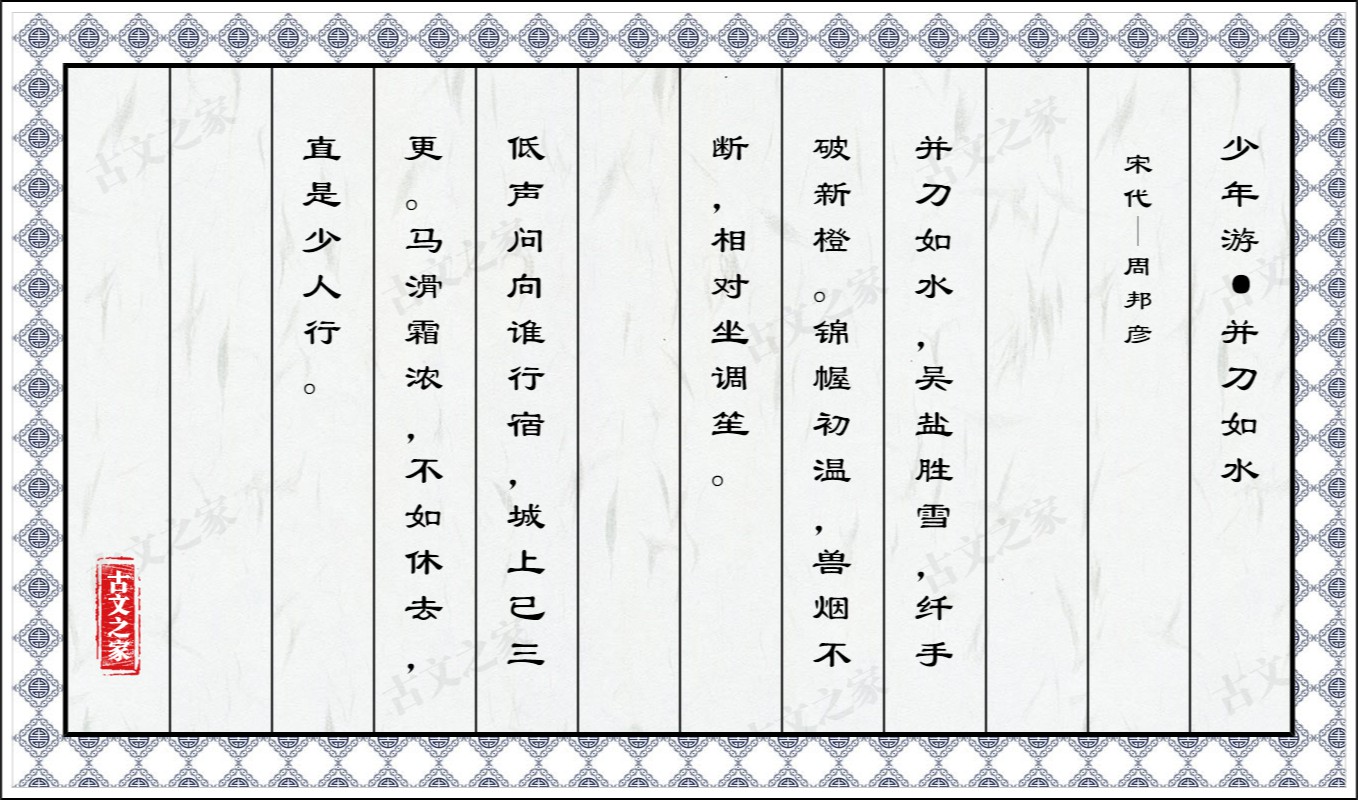 少年游●并刀如水
宋代—周邦彦
并刀如水，吴盐胜雪，纤手
破新橙。锦幄初温，兽烟不
断，相对坐调笙。
低声问向谁行宿，城上已三
更。马滑霜浓，不如休去，
直是少人行。
古文之家